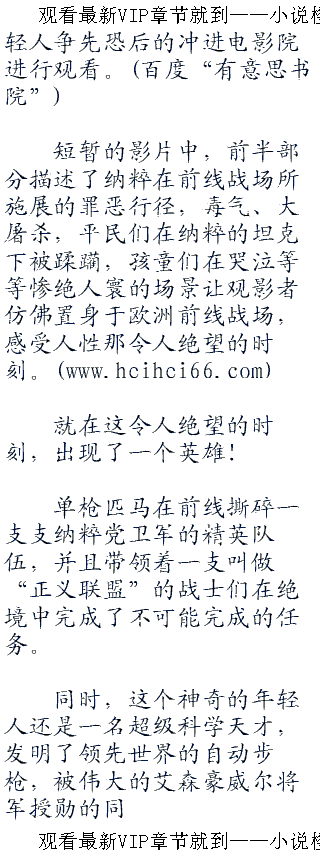 观看最新VIP章节就到——小说检
轻人争先恐后的冲进电影院
进行观看。(百度“有意思书
院”)
短暂的影片中，前半部
分描述了纳粹在前线战场所
施展的罪恶行径，毒气、大
屠杀，平民们在纳粹的坦克
下被蹂躏，孩童们在哭泣等
等惨绝人寰的场景让观影者
仿佛置身于欧洲前线战场，
感受人性那令人绝望的时
刻。(www.hcihci66.com)
就在这令人绝望的时
刻，出现了一个英雄！
单枪匹马在前线撕碎一
支支纳粹党卫军的精英队
伍，并且带领着一支叫做
“正义联盟”的战士们在绝
境中完成了不可能完成的任
务。
同时，这个神奇的年轻
人还是一名超级科学天才，
发明了领先世界的自动步
枪，被伟大的艾森豪威尔将
军授勋的同
观看最新VIP章节就到——小说检